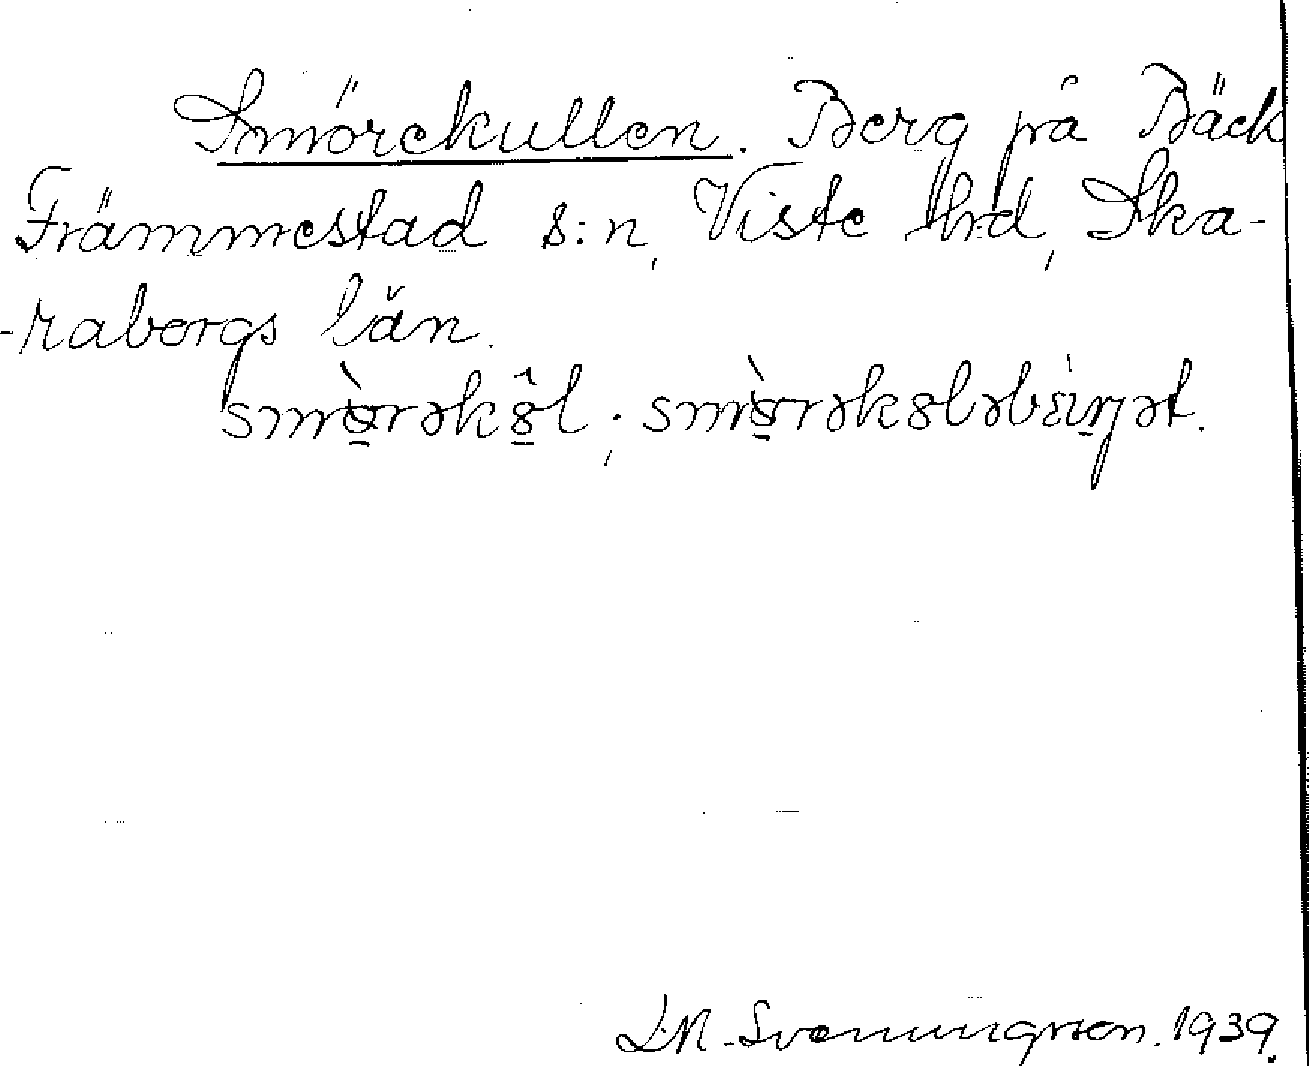 Smörekullen. Berg på Bäck
Främmestad s:n, Viste hrd, Ska-
-raborgs län.
smò̱rəkȣ̱̂l; smò̱rəkȣləbɛ̀rjət.
J.N. Svenningsson. 1939.